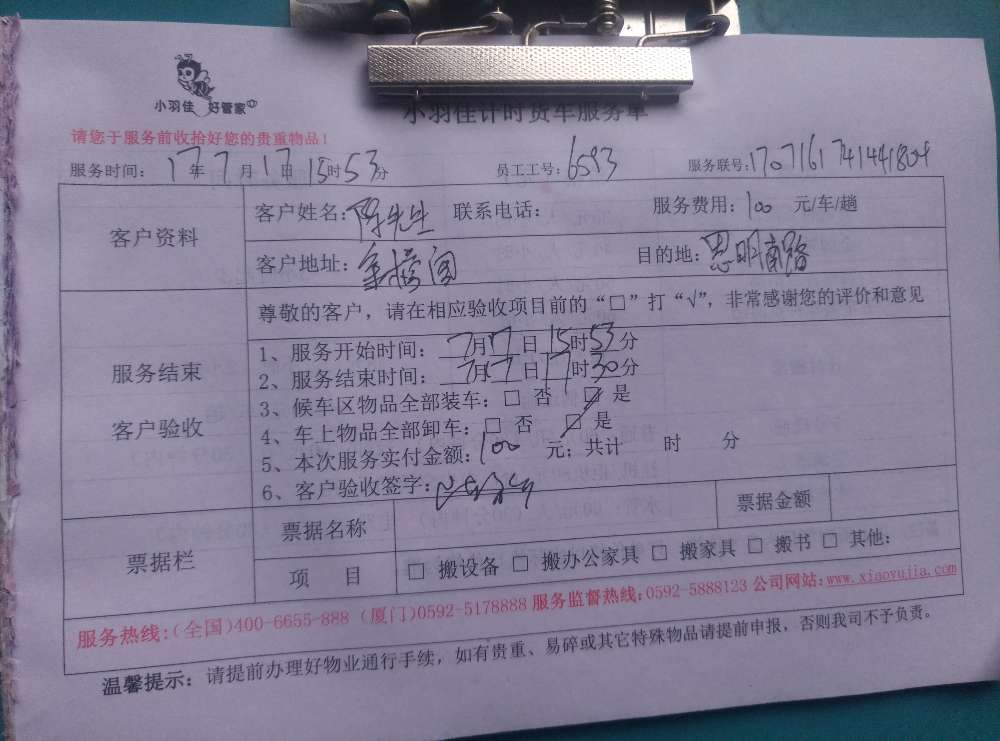 小羽佳 好管家
小羽佳计时货车服务单
请您于服务前收拾好您的贵重物品！
服务时间：17年7月17日15时53分 员工工号：6593 服务联号：17071617414441804
客户资料
客户姓名：陈先生 联系电话： 服务费用：100 元/车/趟
客户地址：金榜园 目的地：思明南路
服务结束
客户验收
尊敬的客户，请在相应验收项目前的“□”打“√”，非常感谢您的评价和意见
1、服务开始时间：7月17日15时53分
2、服务结束时间：7月17日17时30分
3、候车区物品全部装车：□ 否 ☑ 是
4、车上物品全部卸车：□ 否 ☑ 是
5、本次服务实付金额：100 元；共计 时 分
6、客户验收签字：
票据栏
票据名称 票据金额
项 目 □ 搬设备 □ 搬办公家具 □ 搬家具 □ 搬书 □ 其他：
服务热线：(全国)400-6655-888 (厦门)0592-5178888 服务监督热线：0592-5888123 公司网站：www.xiaoyujia.com
温馨提示：请提前办理好物业通行手续，如有贵重、易碎或其它特殊物品请提前申报，否则我司不予负责。